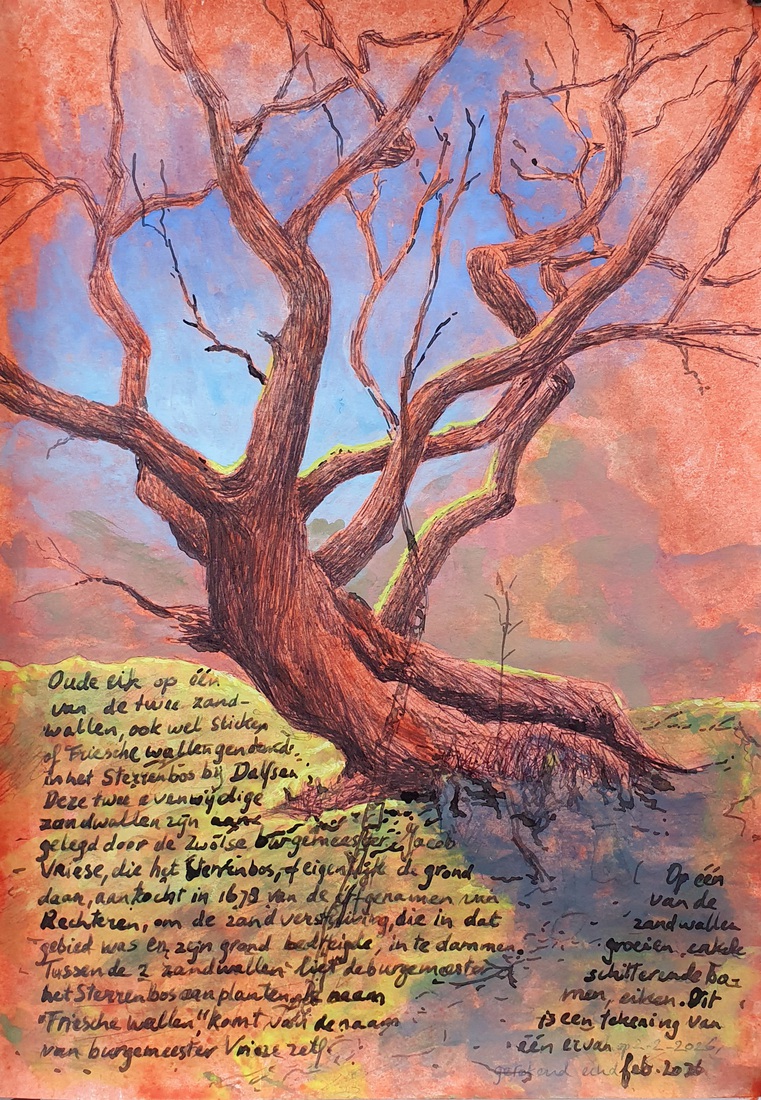 Oude eik op één
van de twee zand-
wallen, ook wel Sticken
of Friesche wallen genoemd.
in het Sterrenbos bij Dalfsen.
Deze twee evenwijdige
zandwallen zijn aan-
gelegd door de Zwolse burgemeester Jacob
Vriese, die het Sterrenbos, of eigenlijk de grond
daar, aankocht in 1678 van de erfgenamen van
Rechteren, om de zandverstuiving, die in dat
gebied was en zijn grond bedreigde, in te dammen.
Tussen de 2 zandwallen liet de burgemeester
het Sterrenbos aanplanten. De naam
"Friesche wallen" komt van de naam
van burgemeester Vrieze zelf.
Op één
van de
zandwallen
groeien enkele
schitterende bo-
men, eiken. Dit
is een tekening van
één ervan op 2-2-2026,
getekend eind feb. 2026